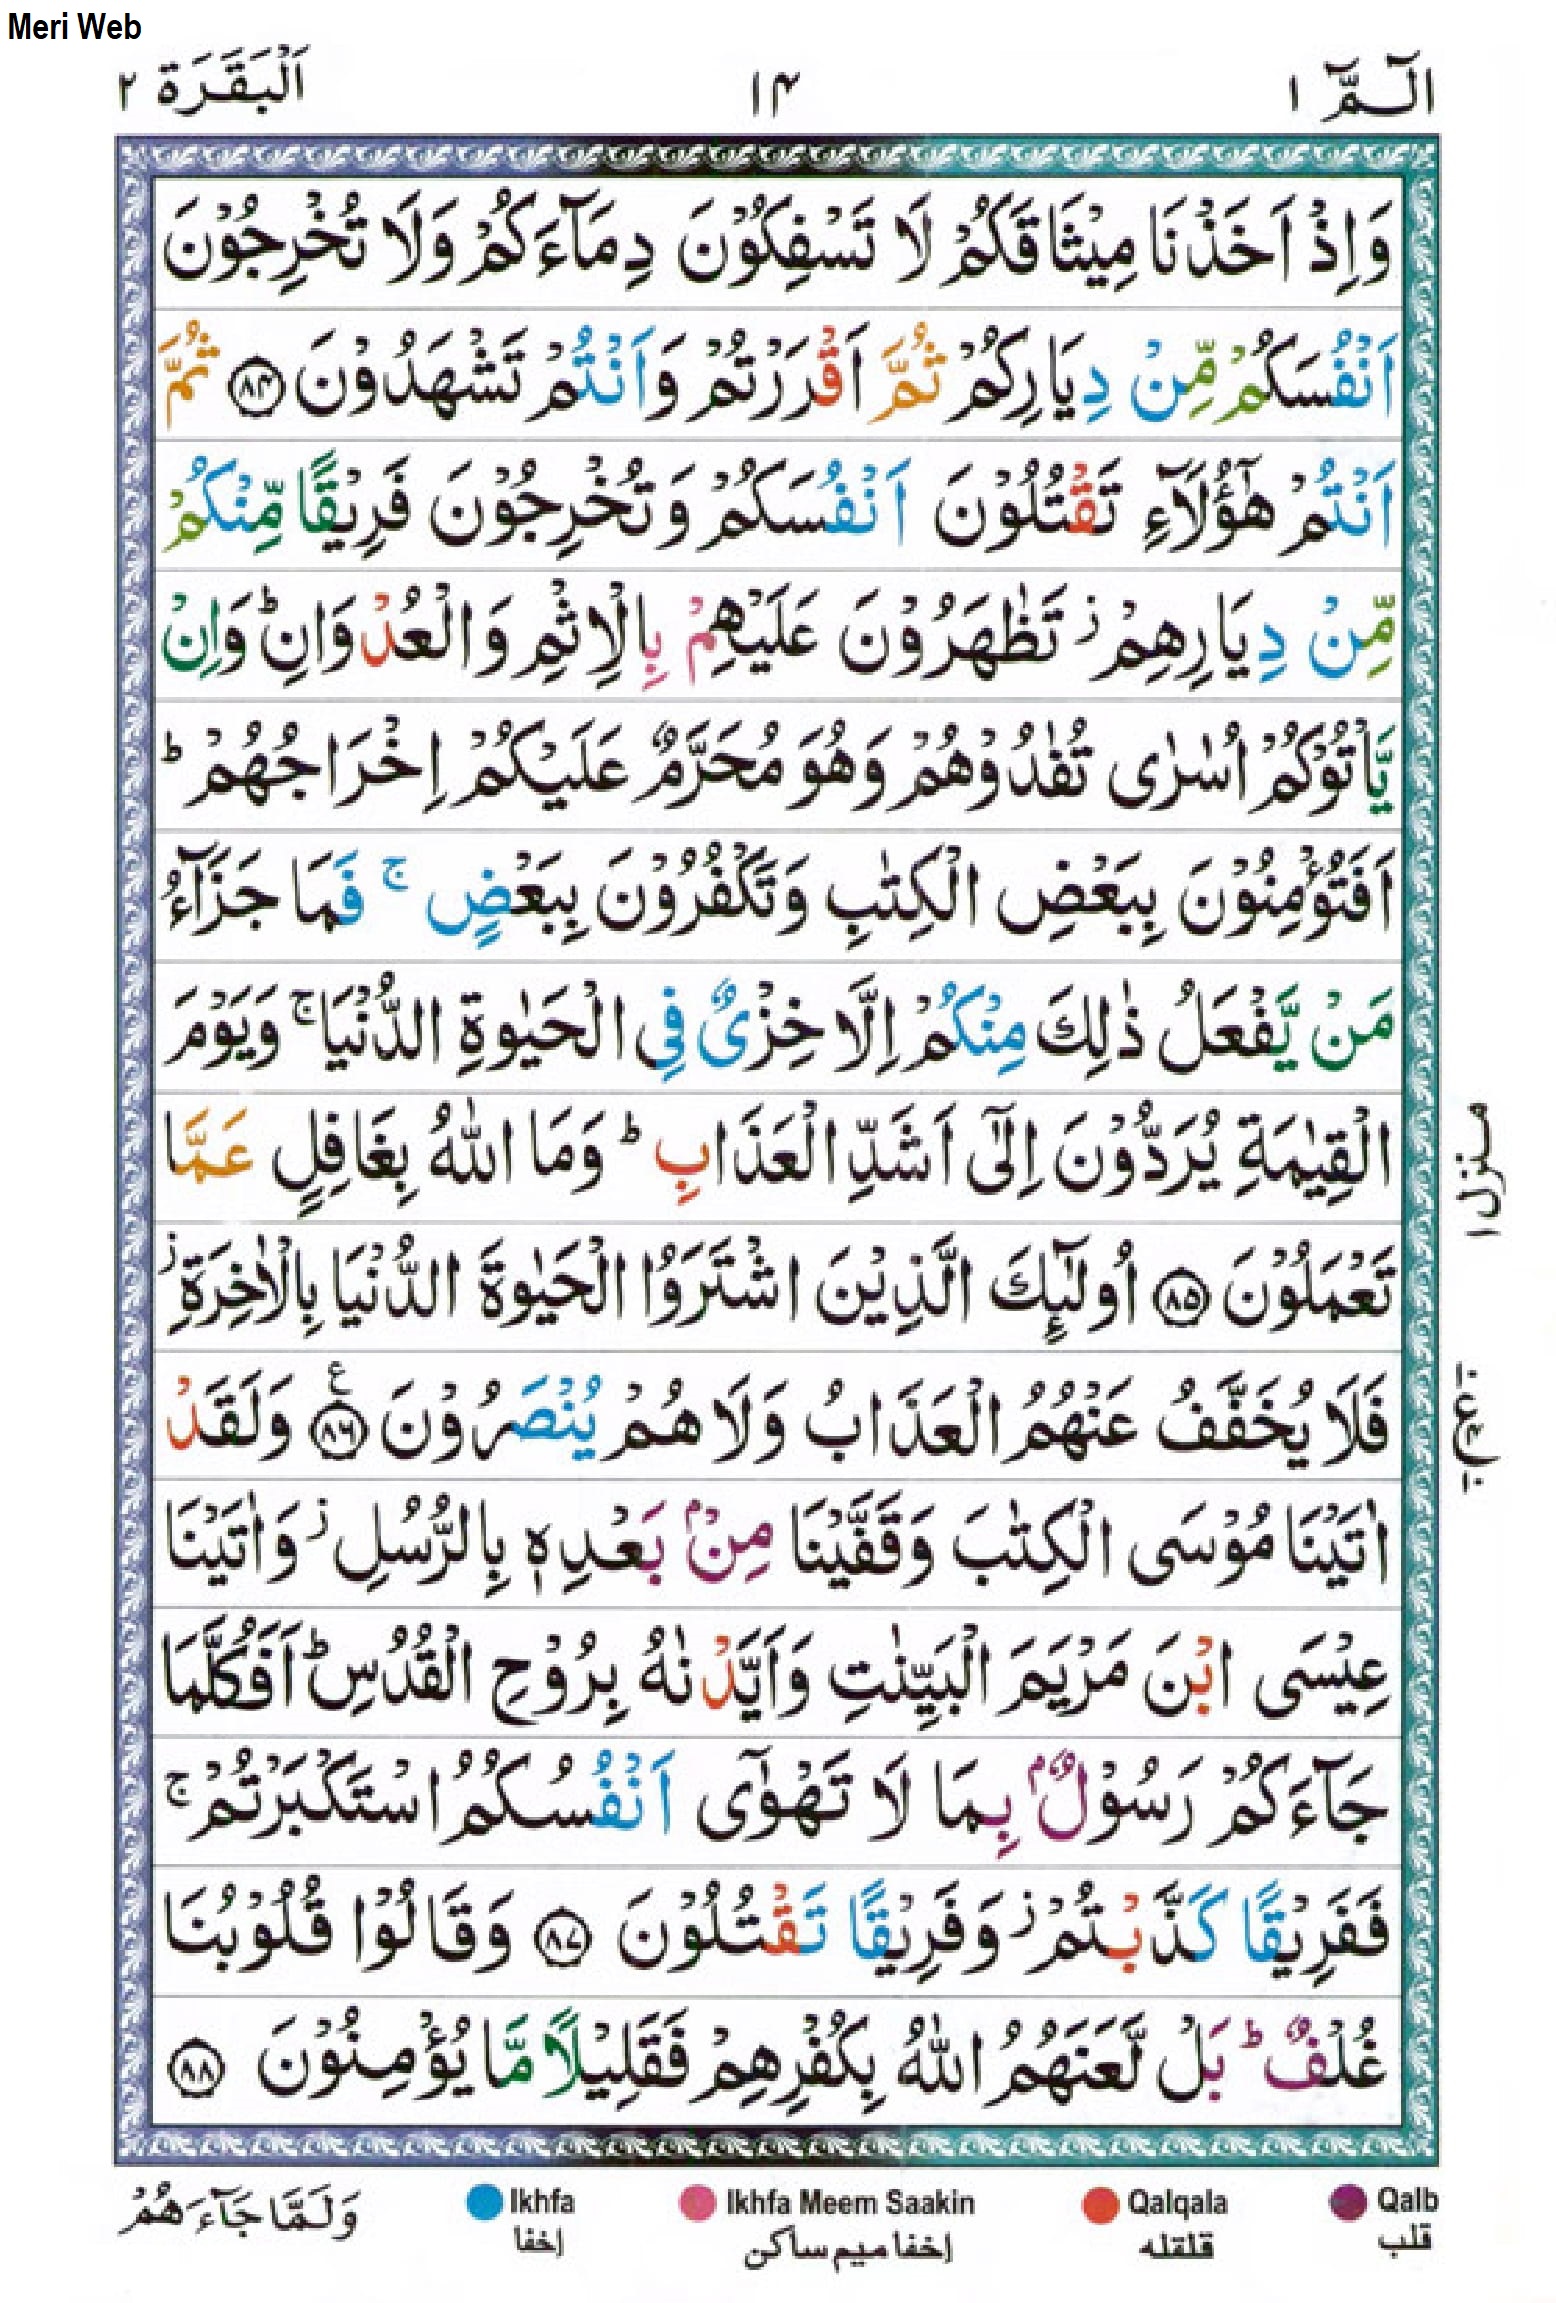 Meri Web
الٓـمّٓ ١
١٤
اَلْبَقَرَة ٢
وَاِذْ اَخَذْنَا مِيْثَاقَكُمْ لَا تَسْفِكُوْنَ دِمَآءَكُمْ وَلَا تُخْرِجُوْنَ
اَنْفُسَكُمْ مِّنْ دِيَارِكُمْ ثُمَّ اَقْرَرْتُمْ وَاَنْتُمْ تَشْهَدُوْنَ ﴿٨٤﴾ ثُمَّ
اَنْتُمْ هٰٓؤُلَآءِ تَقْتُلُوْنَ اَنْفُسَكُمْ وَتُخْرِجُوْنَ فَرِيْقًا مِّنْكُمْ
مِّنْ دِيَارِهِمْ ؗ تَظٰهَرُوْنَ عَلَيْهِمْ بِالْاِثْمِ وَالْعُدْوَانِ ؕ وَاِنْ
يَّاْتُوْكُمْ اُسٰرٰى تُفٰدُوْهُمْ وَهُوَ مُحَرَّمٌ عَلَيْكُمْ اِخْرَاجُهُمْ ؕ
اَفَتُؤْمِنُوْنَ بِبَعْضِ الْكِتٰبِ وَتَكْفُرُوْنَ بِبَعْضٍ ۚ فَمَا جَزَآءُ
مَنْ يَّفْعَلُ ذٰلِكَ مِنْكُمْ اِلَّا خِزْىٌ فِى الْحَيٰوةِ الدُّنْيَا ۚ وَيَوْمَ
الْقِيٰمَةِ يُرَدُّوْنَ اِلٰٓى اَشَدِّ الْعَذَابِ ؕ وَمَا اللّٰهُ بِغَافِلٍ عَمَّا
تَعْمَلُوْنَ ﴿٨٥﴾ اُولٰٓئِكَ الَّذِيْنَ اشْتَرَوُا الْحَيٰوةَ الدُّنْيَا بِالْاٰخِرَةِ ؗ
فَلَا يُخَفَّفُ عَنْهُمُ الْعَذَابُ وَلَا هُمْ يُنْصَرُوْنَ ﴿٨٦﴾ ع وَلَقَدْ
اٰتَيْنَا مُوْسَى الْكِتٰبَ وَقَفَّيْنَا مِنْۢ بَعْدِهٖ بِالرُّسُلِ ؗ وَاٰتَيْنَا
عِيْسَى ابْنَ مَرْيَمَ الْبَيِّنٰتِ وَاَيَّدْنٰهُ بِرُوْحِ الْقُدُسِ ؕ اَفَكُلَّمَا
جَآءَكُمْ رَسُوْلٌۢ بِمَا لَا تَهْوٰٓى اَنْفُسُكُمُ اسْتَكْبَرْتُمْ ۚ
فَفَرِيْقًا كَذَّبْتُمْ ؗ وَفَرِيْقًا تَقْتُلُوْنَ ﴿٨٧﴾ وَقَالُوْا قُلُوْبُنَا
غُلْفٌ ؕ بَلْ لَّعَنَهُمُ اللّٰهُ بِكُفْرِهِمْ فَقَلِيْلًا مَّا يُؤْمِنُوْنَ ﴿٨٨﴾
منزل ١
Qalb
قلب
Qalqala
قلقله
Ikhfa Meem Saakin
إخفا ميم ساكن
Ikhfa
إخفا
وَلَمَّا جَآءَهُمْ